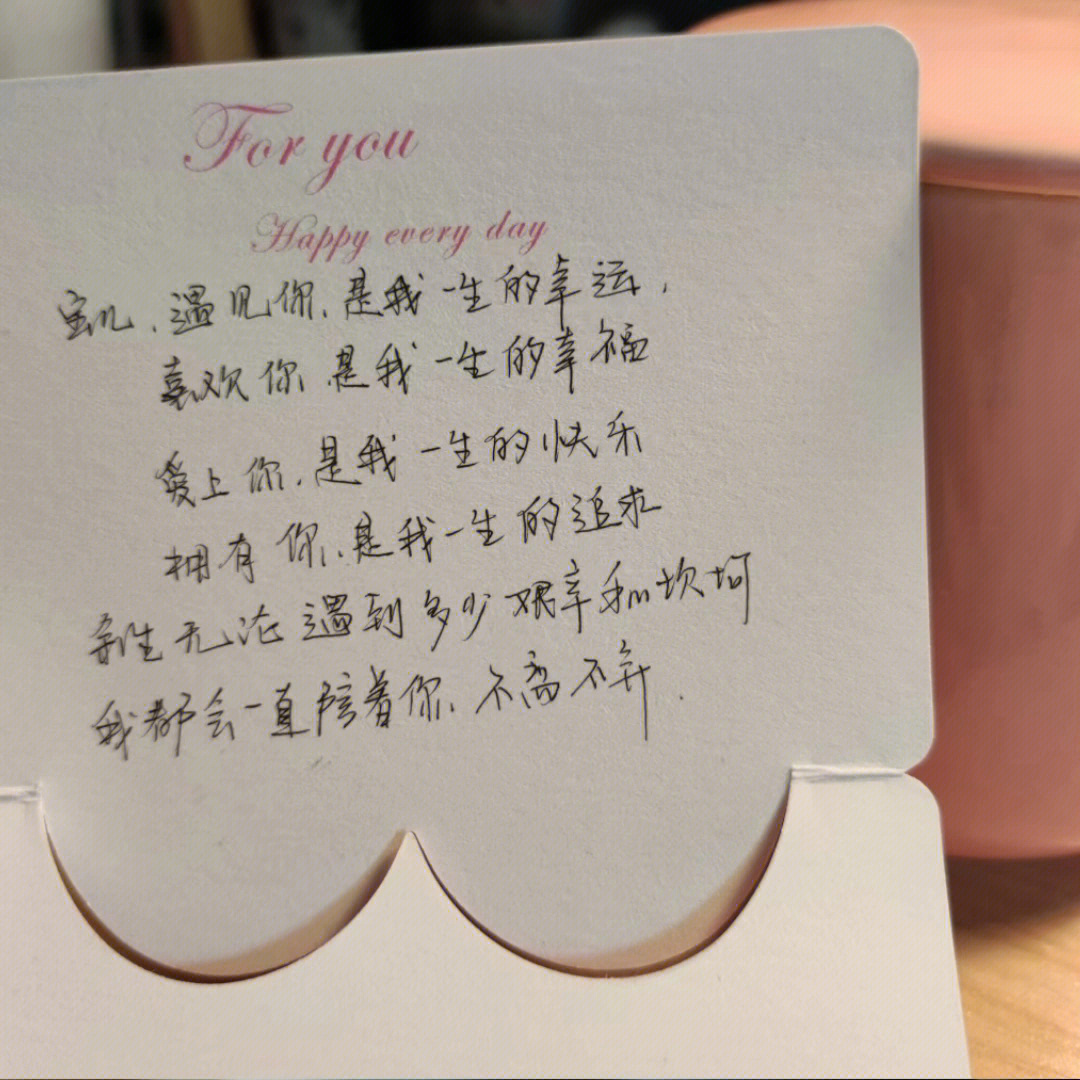 For you
Happy every day
宝儿、遇见你、是我一生的幸运,
喜欢你 是我一生的幸福
爱上你、是我一生的快乐
拥有你、是我一生的追求
余生无论遇到多少艰辛和坎坷
我都会一直陪着你、不离不弃.